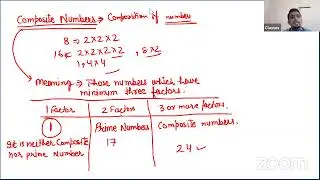 Composite Numbers → Composition of numbers
8 = 2×2×2
16 = 2×2×2×2, 8×2
1, 4×4
Meaning → Those numbers which have
minimum three factors.
1 Factor
2 Factors
3 or more factors.
1
Prime Numbers
Composite numbers.
It is neither Composite
nor prime number
17
24
zoom